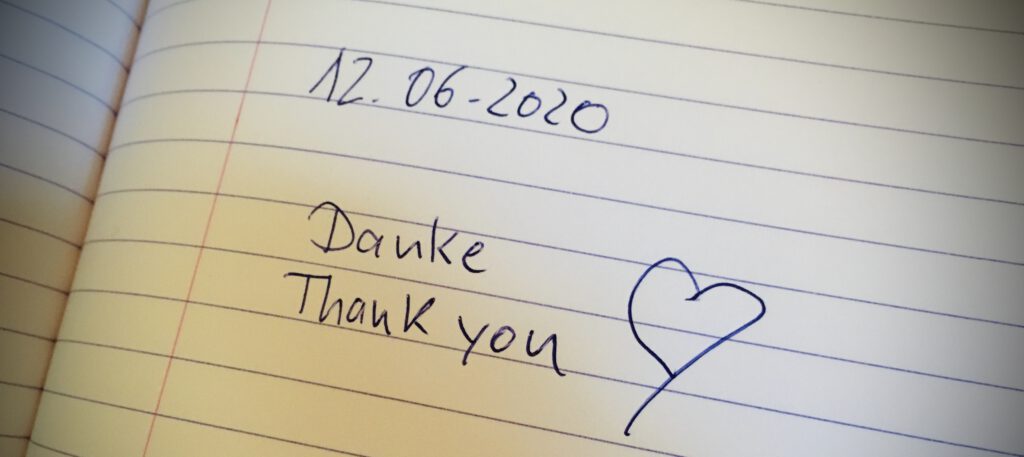 12.06-2020
Danke
Thank you